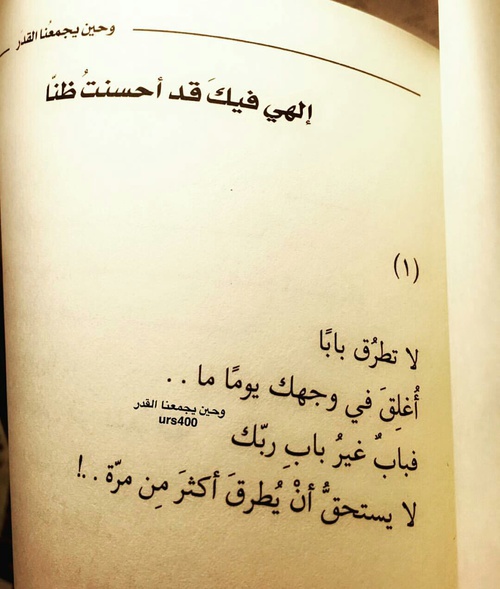 وحين يجمعُنا القدر
إلهي فيكَ قد أحسنتُ ظنّا
(١)
لا تطرُق بابًا
أُغلِقَ في وجهك يومًا ما . .
وحين يجمعنا القدر
urs400
فبابٌ غيرُ بابِ ربّك
لا يستحقُّ أنْ يُطرقَ أكثرَ مِن مرّة . .!